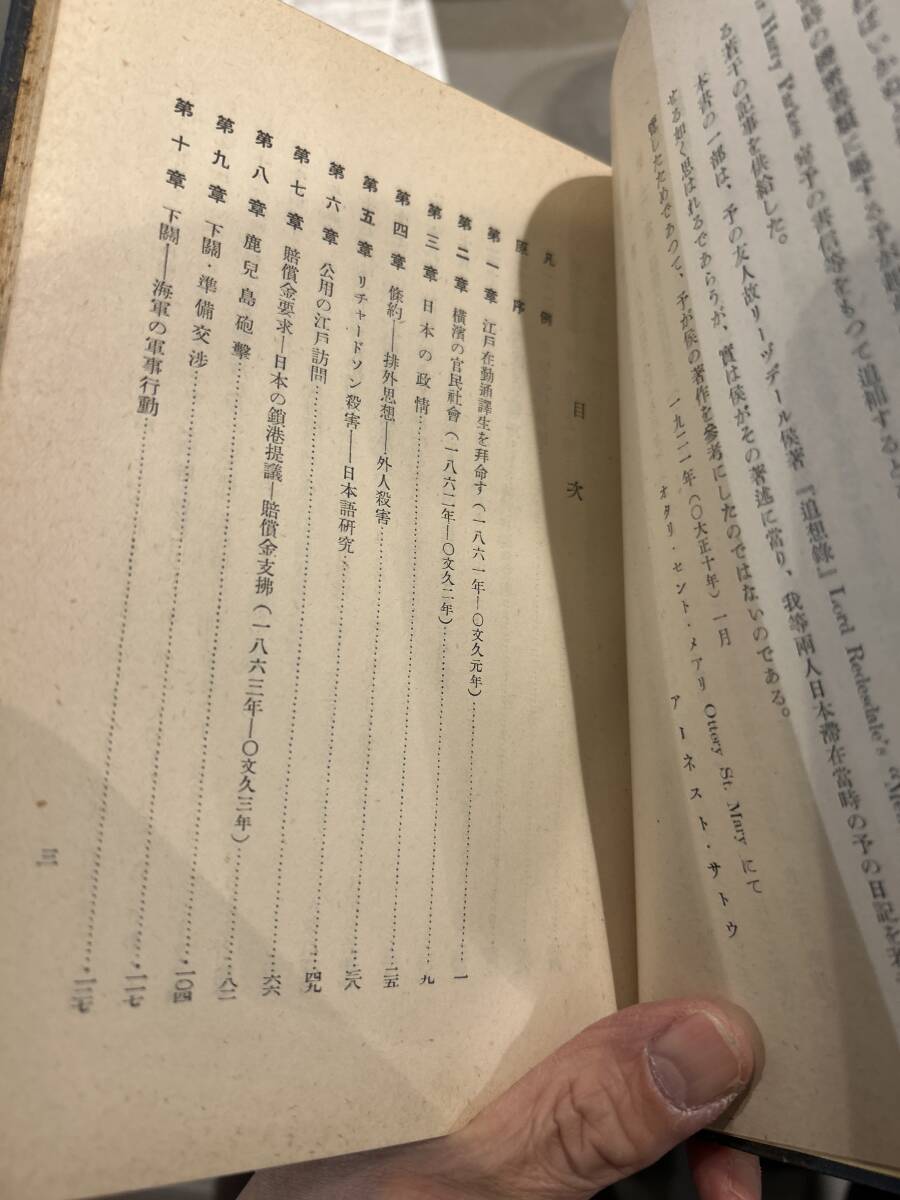 ればいかぬと
時の機密書類に屬する予が親
Harry Parkes 宛予の書信等をもつて追補すると
る若干の記事を供給した。
本書の一部は、予の友人故リーヅデール侯著『追想錄』Lord Redesdale's
せる如く思はれるであらうが、實は侯がその著述に當り、我等兩人日本滯在當時の予の日記を
したためであつて、予が侯の著作を參考にしたのではないのである。
一九二一年(〇大正十年)一月 Ottery St. Mary にて
オタリ・セント・メアリ
アーネスト・サトウ
目次
凡例
原序
第一章 江戶在勤通譯生を拜命す(一八六一年—〇文久元年)……一
第二章 橫濱の官民社會(一八六二年—〇文久二年)……九
第三章 日本の政情……二五
第四章 條約——排外思想——外人殺害……三八
第五章 リチャードソン殺害——日本語硏究……四九
第六章 公用の江戶訪問……六六
第七章 賠償金要求—日本の鎖港提議—賠償金支拂(一八六三年—〇文久三年)……八二
第八章 鹿兒島砲擊……一〇四
第九章 下關・準備交涉……一一七
第十章 下關——海軍の軍事行動……一二七
三